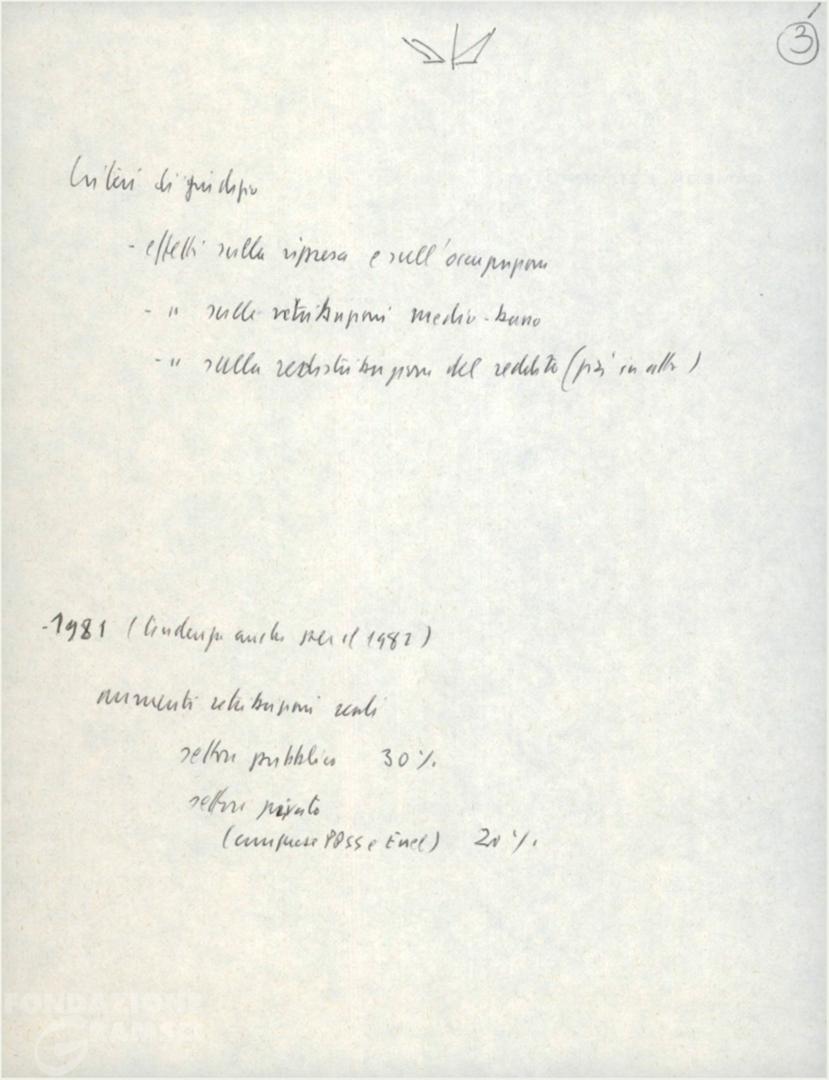 3
Criteri di giudizio
- effetti sulla ripresa e sull'occupazione
- " sulle retribuzioni medio-basse
- " sulla redistribuzione del reddito (più in alto)
-1981 (tendenza anche per il 1982)
aumenti retribuzioni reali
settore pubblico 30%
settore privato
(comprese PPSS e Enel) 20%
FONDAZIONE
GRAMSCI